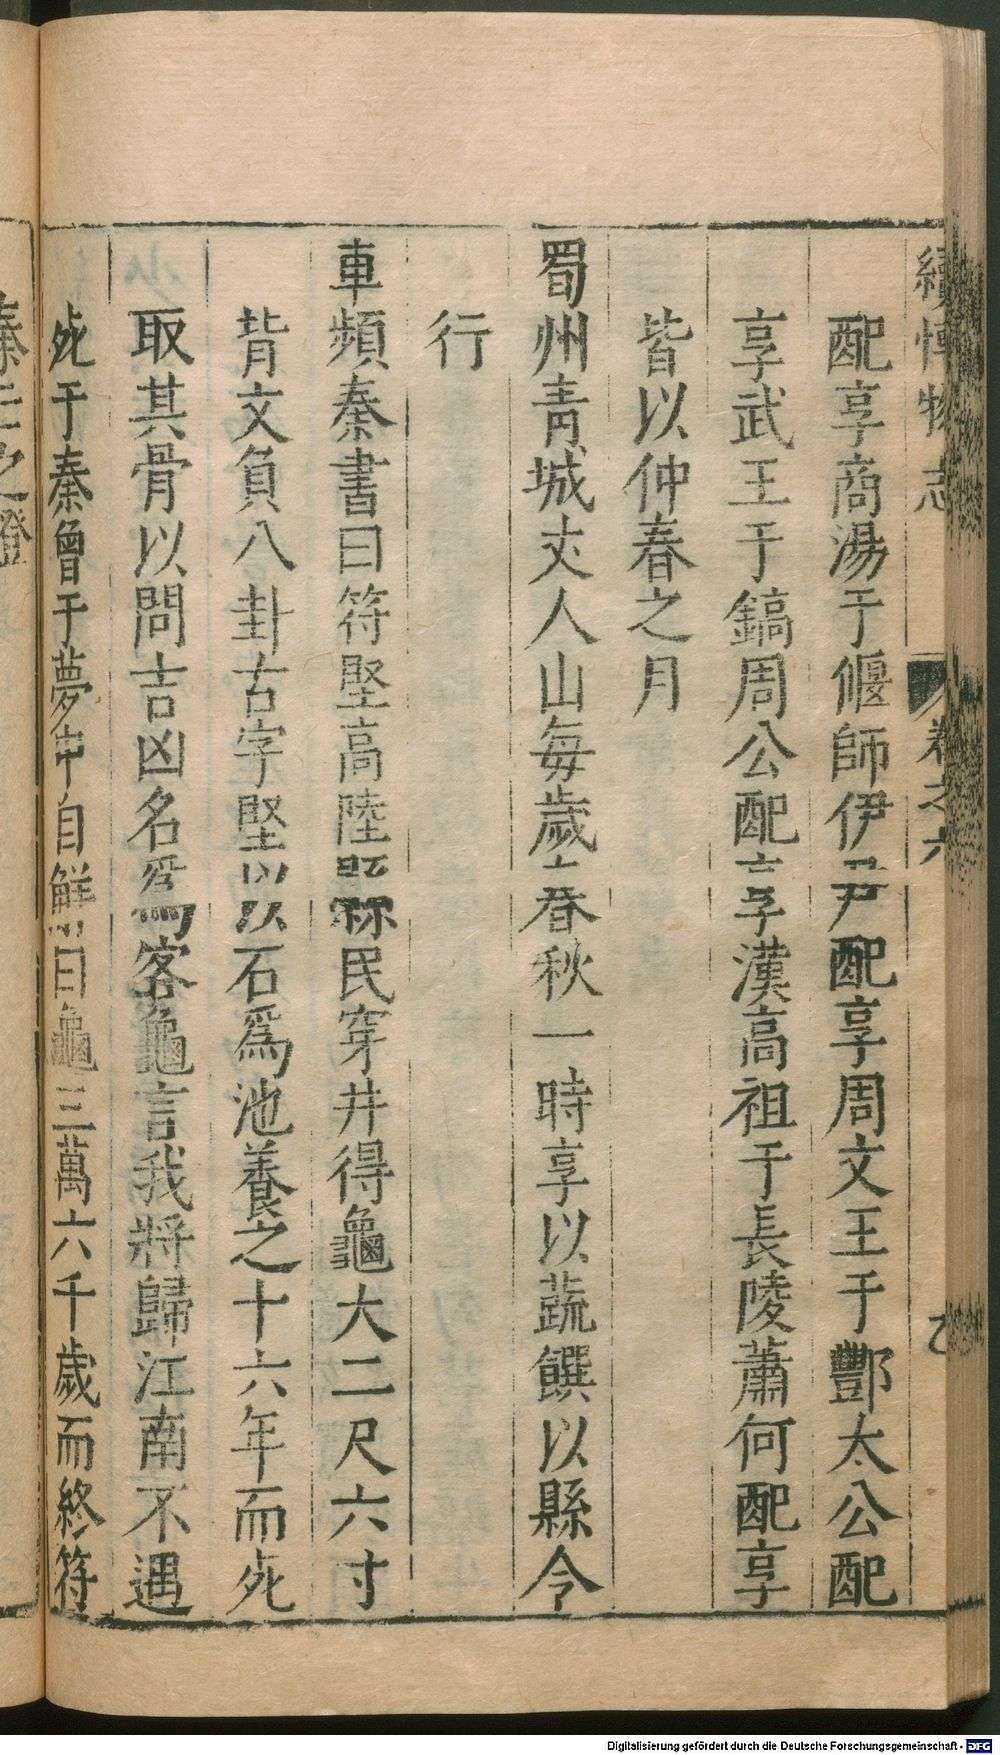 續博物志 卷之六
配享商湯于偃師伊尹配享周文王于酆太公配
享武王于鎬周公配享漢高祖于長陵蕭何配享
皆以仲春之月
蜀州青城丈人山每歲春秋一時享以蔬饌以縣令
行
車頻秦書曰符堅高陸縣民穿井得龜大二尺六寸
背文負八卦古字堅以石爲池養之十六年而死
取其骨以問吉凶名爲客龜言我將歸江南不遇
死于秦曾于夢中自解曰龜三萬六千歲而終符
秦亡之證
Digitalisierung gefördert durch die Deutsche Forschungsgemeinschaft - DFG